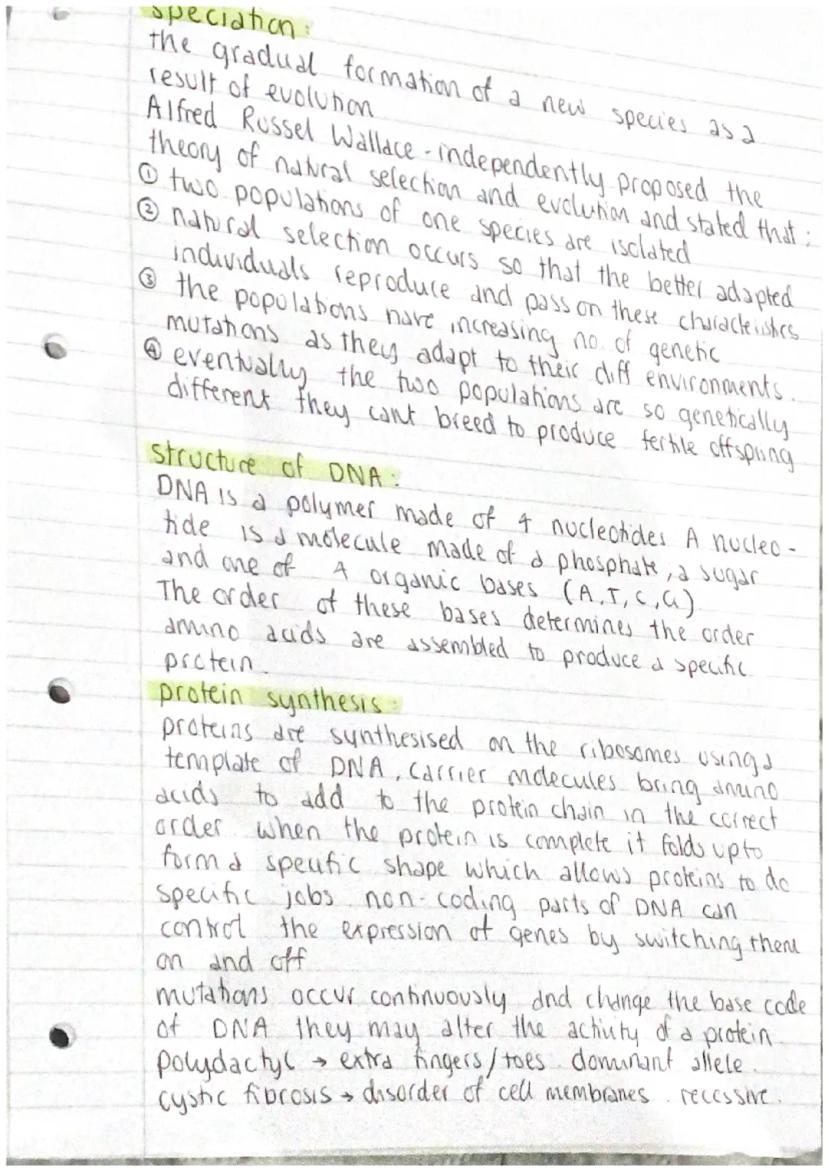 speciation:
the gradual formation of a new species as a
result of evolution
Alfred Russel Wallace - independently proposed the
theory of natural selection and evolution and stated that:
① two populations of one species are isolated
② natural selection occurs so that the better adapted
individuals reproduce and pass on these characteristics
③ the populations have increasing no. of genetic
mutations as they adapt to their diff environments.
④ eventually the two populations are so genetically
different they cant breed to produce fertile offspring
structure of DNA:
DNA is a polymer made of 4 nucleotides A nucleo-
tide is a molecule made of a phosphate, a sugar
and one of 4 organic bases (A, T, C, G)
The order of these bases determines the order
amino acids are assembled to produce a specific
protein.
protein synthesis:
proteins are synthesised on the ribosomes using a
template of DNA. Carrier molecules bring amino
acids to add to the protein chain in the correct
order. when the protein is complete it folds up to
form a specific shape which allows proteins to do
specific jobs non-coding parts of DNA can
control the expression of genes by switching them
on and off
mutations occur continuously and change the base code
of DNA they may alter the activity of a protein.
polydactyl → extra fingers/toes. dominant allele.
cystic fibrosis → disorder of cell membranes. recessive.